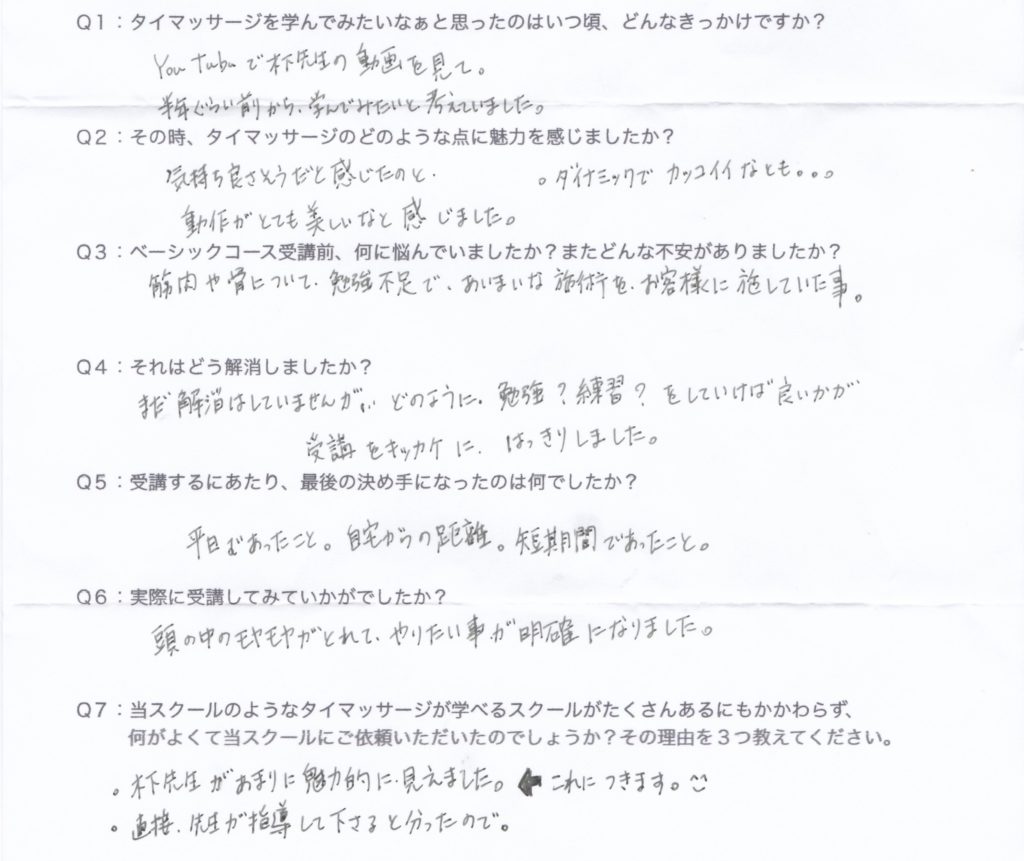 Q1：タイマッサージを学んでみたいなぁと思ったのはいつ頃、どんなきっかけですか？
You tubeで木下先生の動画を見て。
半年ぐらい前から、学んでみたいと考えていました。
Q2：その時、タイマッサージのどのような点に魅力を感じましたか？
気持ち良さそうだと感じたのと、 。ダイナミックでカッコイイなとも。。。
動作がとても美しいなと感じました。
Q3：ベーシックコース受講前、何に悩んでいましたか？またどんな不安がありましたか？
筋肉や骨について、勉強不足で、あいまいな施術を、お客様に施していた事。
Q4：それはどう解消しましたか？
まだ解消はしていませんが、、どのように、勉強？練習？をしていけば良いかが
受講をキッカケに、はっきりしました。
Q5：受講するにあたり、最後の決め手になったのは何でしたか？
平日であったこと。自宅からの距離。短期間であったこと。
Q6：実際に受講してみていかがでしたか？
頭の中のモヤモヤがとれて、やりたい事が明確になりました。
Q7：当スクールのようなタイマッサージが学べるスクールがたくさんあるにもかかわらず、
何がよくて当スクールにご依頼いただいたのでしょうか？その理由を３つ教えてください。
。木下先生があまりに魅力的に見えました。← これにつきます。
。直接、先生が指導して下さると分ったので。